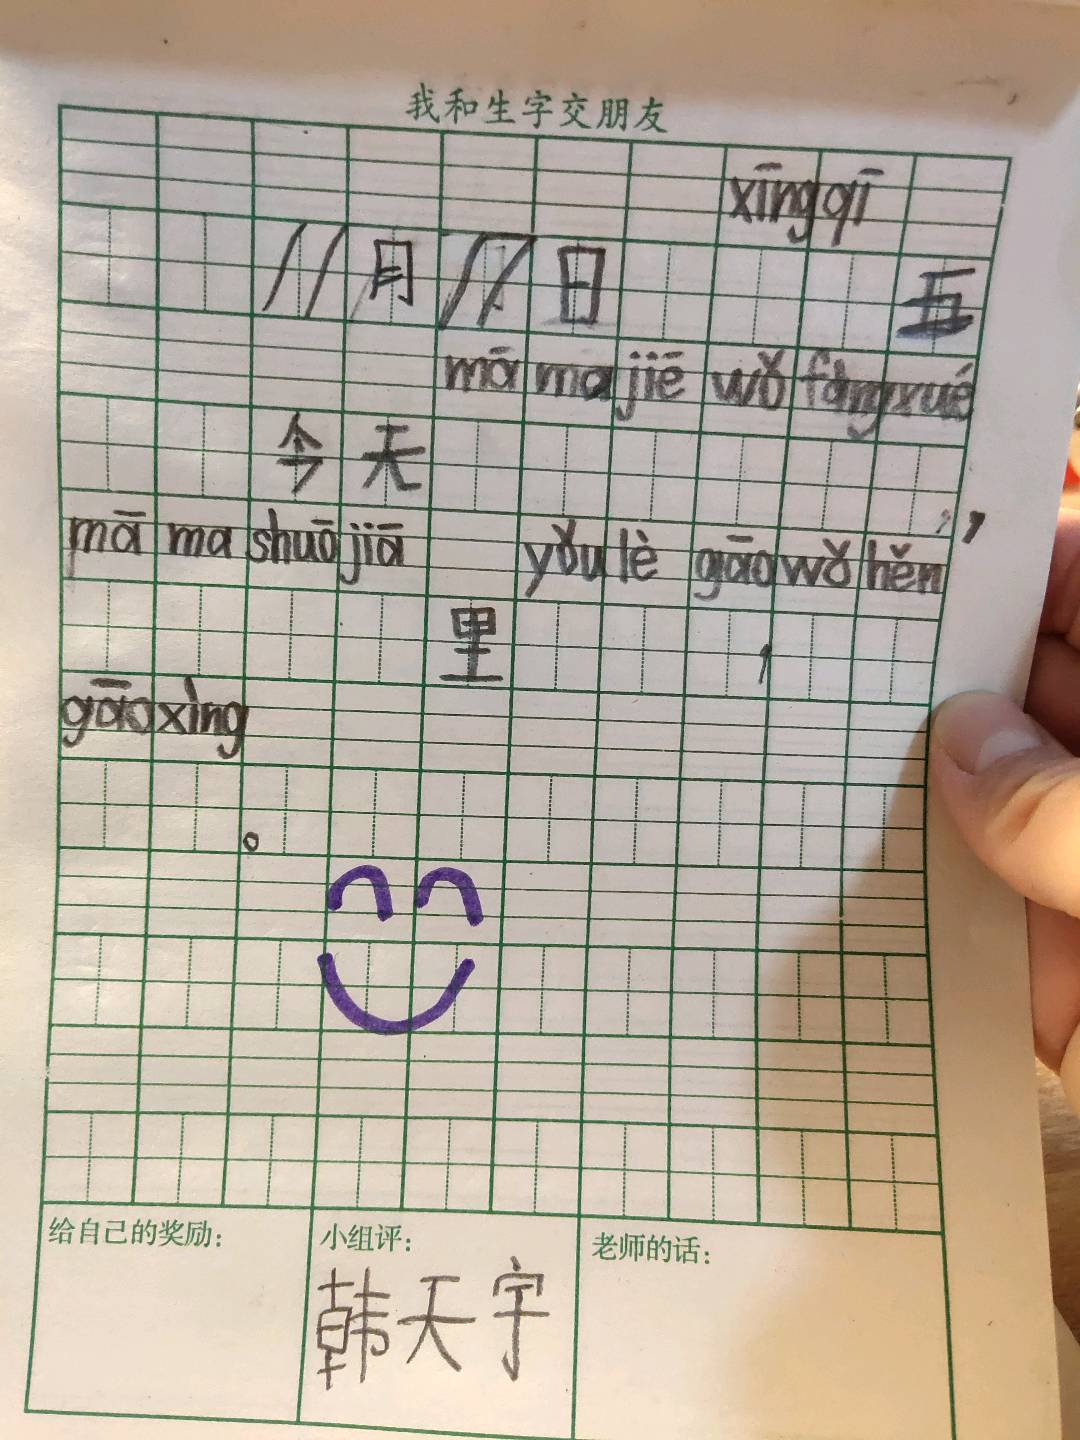 我和生字交朋友
xīng qī
11月11日 五
mā ma jiē wǒ fàng xué
今天 ,
mā ma shuō jiā yǒu lè gāo wǒ hěn
里 ,
gāo xìng
。
给自己的奖励: 小组评: 老师的话:
韩天宇